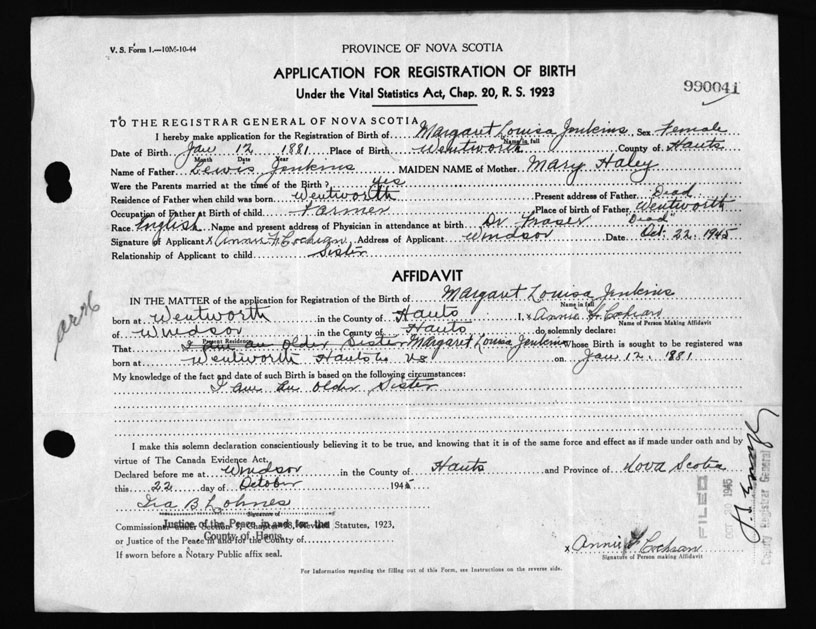 V. S. Form 1.—10M-10-44
PROVINCE OF NOVA SCOTIA
APPLICATION FOR REGISTRATION OF BIRTH
Under the Vital Statistics Act, Chap. 20, R. S. 1923
990041
TO THE REGISTRAR GENERAL OF NOVA SCOTIA
I hereby make application for the Registration of Birth of Margaret Louisa Jenkins, Sex Female
Name in full
Date of Birth Jan 12 1881 Place of Birth Wentworth County of Hants
Month Date Year
Name of Father Lewis Jenkins MAIDEN NAME of Mother Mary Haley
Were the Parents married at the time of the Birth? yes
Residence of Father when child was born Wentworth Present address of Father Dead
Occupation of Father at Birth of child Farmer Place of birth of Father Wentworth
Race English Name and present address of Physician in attendance at birth Dr Fraser Dead
Signature of Applicant x Annie F Cochran Address of Applicant Windsor Date Oct. 22. 1945
Relationship of Applicant to child Sister
AFFIDAVIT
IN THE MATTER of the application for Registration of the Birth of Margaret Louisa Jenkins
Name in full
born at Wentworth in the County of Hants I, x Annie F Cochran
Name of Person Making Affidavit
of Windsor in the County of Hants do solemnly declare:
Present Residence
That I am an older Sister Margaret Louisa Jenkins Whose Birth is sought to be registered was
born at Wentworth Hants Co N.S. on Jan 12. 1881
My knowledge of the fact and date of such Birth is based on the following circumstances:
I am an older Sister
I make this solemn declaration conscientiously believing it to be true, and knowing that it is of the same force and effect as if made under oath and by
virtue of The Canada Evidence Act,
Declared before me at Windsor in the County of Hants and Province of Nova Scotia
this 22 day of October 1945
Ira B Lohnes
Signature of
Commissioner under Section Chapter Revised Statutes, 1923,
Justice of the Peace in and for the
County of Hants
or Justice of the Peace in and for the County of
If sworn before a Notary Public affix seal.
x Annie F Cochran
Signature of Person making Affidavit
For Information regarding the filling out of this Form, see Instructions on the reverse side.
FILED
1945
Deputy Registrar General